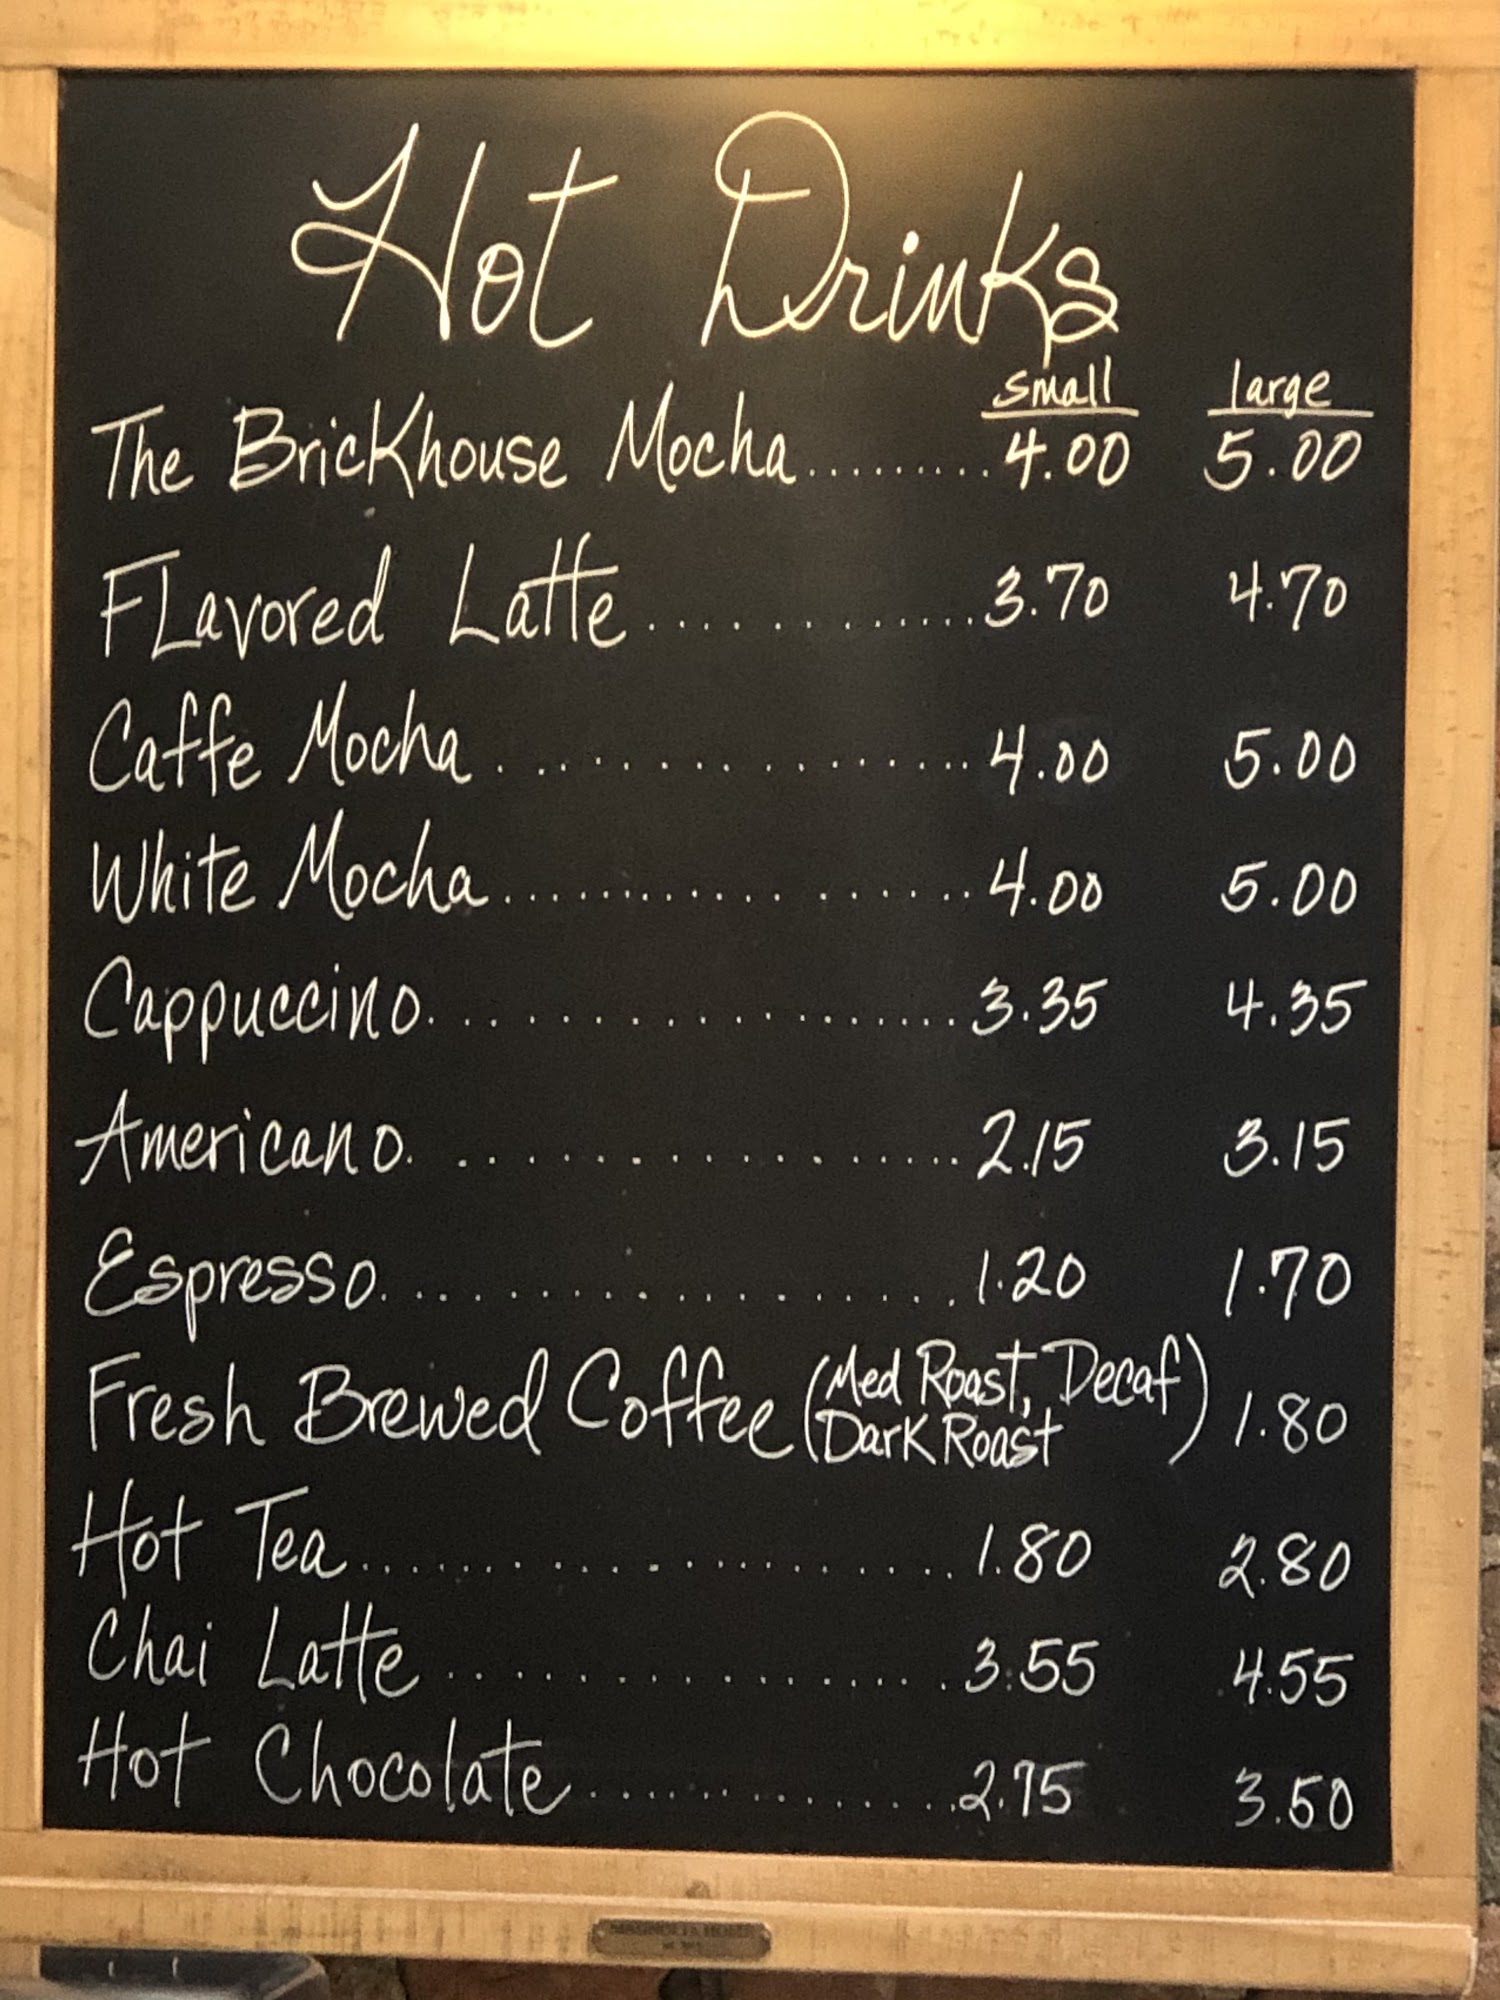 Hot Drinks
small large
The Brickhouse Mocha......... 4.00 5.00
FLavored Latte............. 3.70 4.70
Caffe Mocha.................. 4.00 5.00
White Mocha.................. 4.00 5.00
Cappuccino................... 3.35 4.35
Americano.................. 2.15 3.15
Espresso................... 1.20 1.70
Fresh Brewed Coffee (Med Roast, Decaf Dark Roast) 1.80
Hot Tea.................... 1.80 2.80
Chai Latte................. 3.55 4.55
Hot Chocolate.............. 2.75 3.50